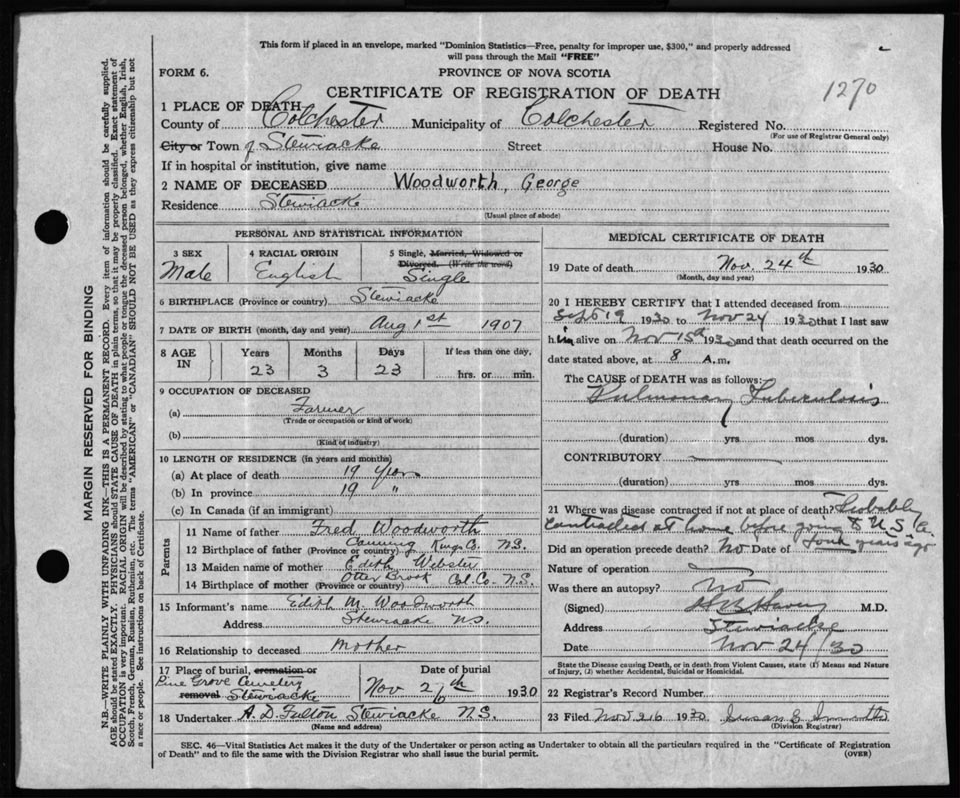 This form if placed in an envelope, marked "Dominion Statistics—Free, penalty for improper use, $300," and properly addressed
will pass through the Mail "FREE"
FORM 6.
PROVINCE OF NOVA SCOTIA
CERTIFICATE OF REGISTRATION OF DEATH
1270
1 PLACE OF DEATH
County of Colchester Municipality of Colchester Registered No.
(For use of Registrar General only)
City or Town of Stewiacke Street House No.
If in hospital or institution, give name
2 NAME OF DECEASED Woodworth, George
Residence Stewiacke
(Usual place of abode)
PERSONAL AND STATISTICAL INFORMATION
3 SEX
Male
4 RACIAL ORIGIN
English
5 Single, Married, Widowed or
Divorced. (Write the word)
Single
6 BIRTHPLACE (Province or country) Stewiacke
7 DATE OF BIRTH (month, day and year) Aug 1st 1907
8 AGE
IN
Years Months Days If less than one day,
23 3 23 hrs. or min.
9 OCCUPATION OF DECEASED
(a) Farmer
(Trade or occupation or kind of work)
(b)
(Kind of industry)
10 LENGTH OF RESIDENCE (in years and months)
(a) At place of death 19 years
(b) In province 19 "
(c) In Canada (if an immigrant)
Parents
11 Name of father Fred Woodworth
12 Birthplace of father (Province or country) Canning Kings Co. N.S.
13 Maiden name of mother Edith Webster
14 Birthplace of mother (Province or country) Otter Brook Col. Co. N.S.
15 Informant's name Edith M. Woodworth
Address Stewiacke N.S.
16 Relationship to deceased Mother
17 Place of burial, cremation or
Pine Grove Cemetery
removal Stewiacke
Date of burial
Nov 26th 1930
18 Undertaker A. D. Fulton Stewiacke N.S.
(Name and address)
MEDICAL CERTIFICATE OF DEATH
19 Date of death Nov. 24th 1930
(Month, day and year)
20 I HEREBY CERTIFY that I attended deceased from
Sept 19 1930 to Nov 24 1930 that I last saw
him alive on Nov 15th 1930 and that death occurred on the
date stated above, at 8 A.m.
The CAUSE of DEATH was as follows:
Pulmonary Tuberculosis
(duration) yrs mos dys.
CONTRIBUTORY
(duration) yrs. mos dys.
21 Where was disease contracted if not at place of death? Probably
contracted at home before going to U.S.A.
four years ago
Did an operation precede death? No Date of
Nature of operation
Was there an autopsy? No
(Signed) M.D.
Address Stewiacke
Date Nov 24/30
State the Disease causing Death, or in death from Violent Causes, state (1) Means and Nature
of Injury, (2) whether Accidental, Suicidal or Homicidal.
22 Registrar's Record Number
23 Filed Nov 26 1930 Susan
(Division Registrar)
SEC. 46—Vital Statistics Act makes it the duty of the Undertaker or person acting as Undertaker to obtain all the particulars required in the "Certificate of Registration
of Death" and to file the same with the Division Registrar who shall issue the burial permit.
(OVER)
MARGIN RESERVED FOR BINDING
N.B.—WRITE PLAINLY WITH UNFADING INK—THIS IS A PERMANENT RECORD. Every item of information should be carefully supplied.
AGE should be stated EXACTLY. PHYSICIANS should STATE CAUSE OF DEATH in plain terms, so that it may be properly classified. Exact statement of
OCCUPATION is very important. RACIAL ORIGIN will be described by stating to what people or tongue the deceased person belonged, whether English, Irish,
Scotch, French, German, Russian, Ruthenian, etc. The terms "AMERICAN" or "CANADIAN" SHOULD NOT BE USED as they express citizenship but not
a race or people. See instructions on back of Certificate.